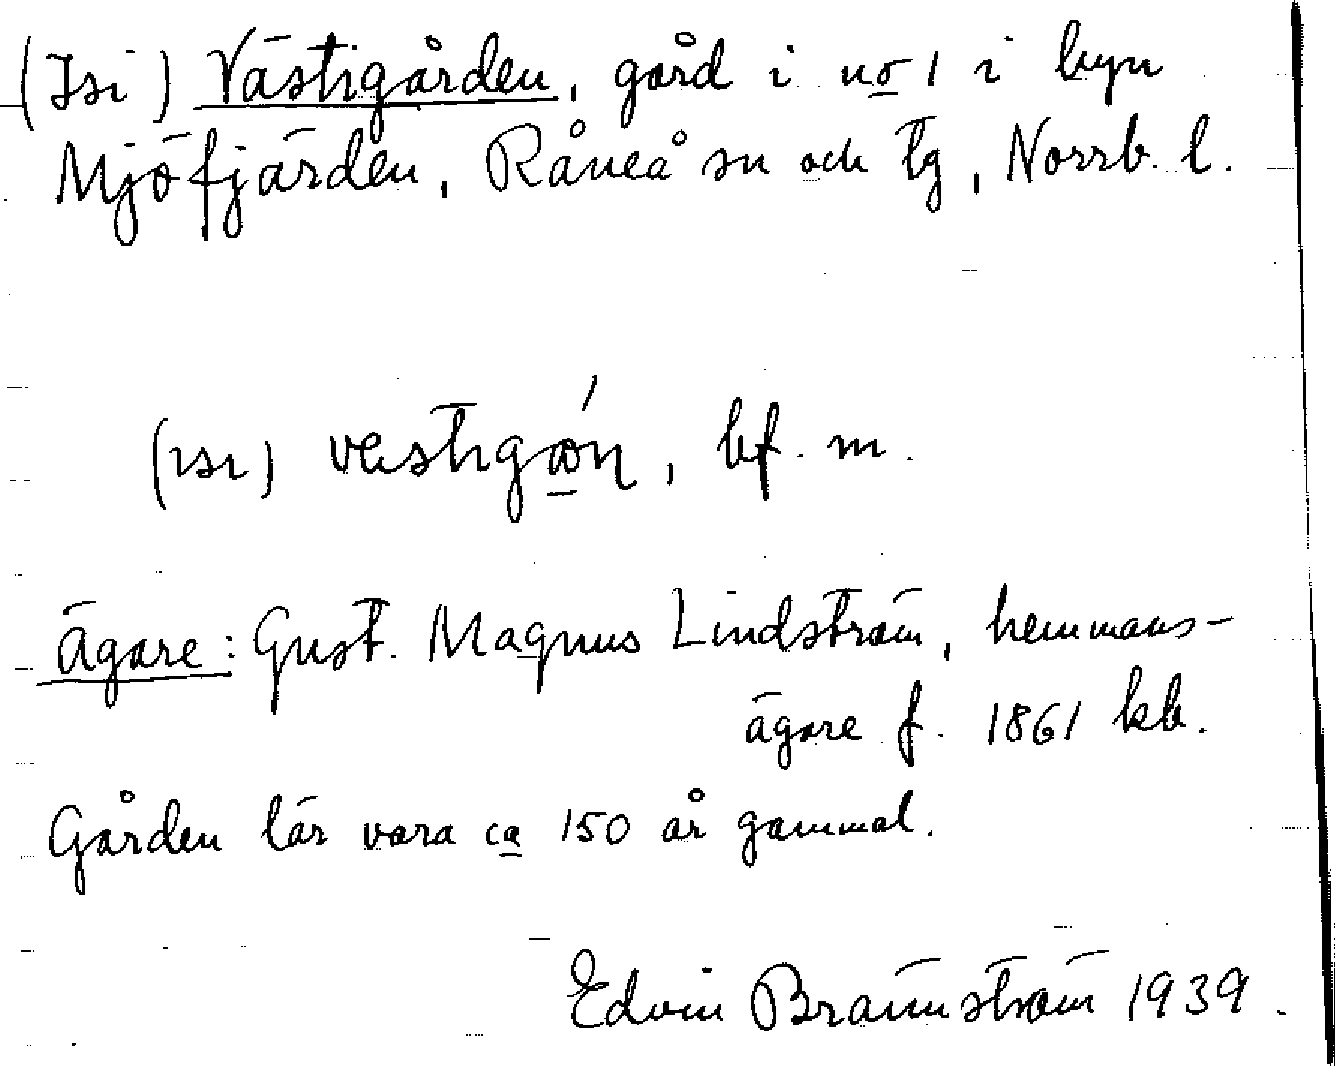 (Isi) Västigården, gård i no 1 i byn
Mjöfjärden, Råneå sn och tg, Norrb. l.
(ısı) , bf. m.
Ägare: Gust. Magnus Lindström, hemmans-
ägare f. 1861 kb.
Gården lär vara ca 150 år gammal.
Edvin Brännström 1939.